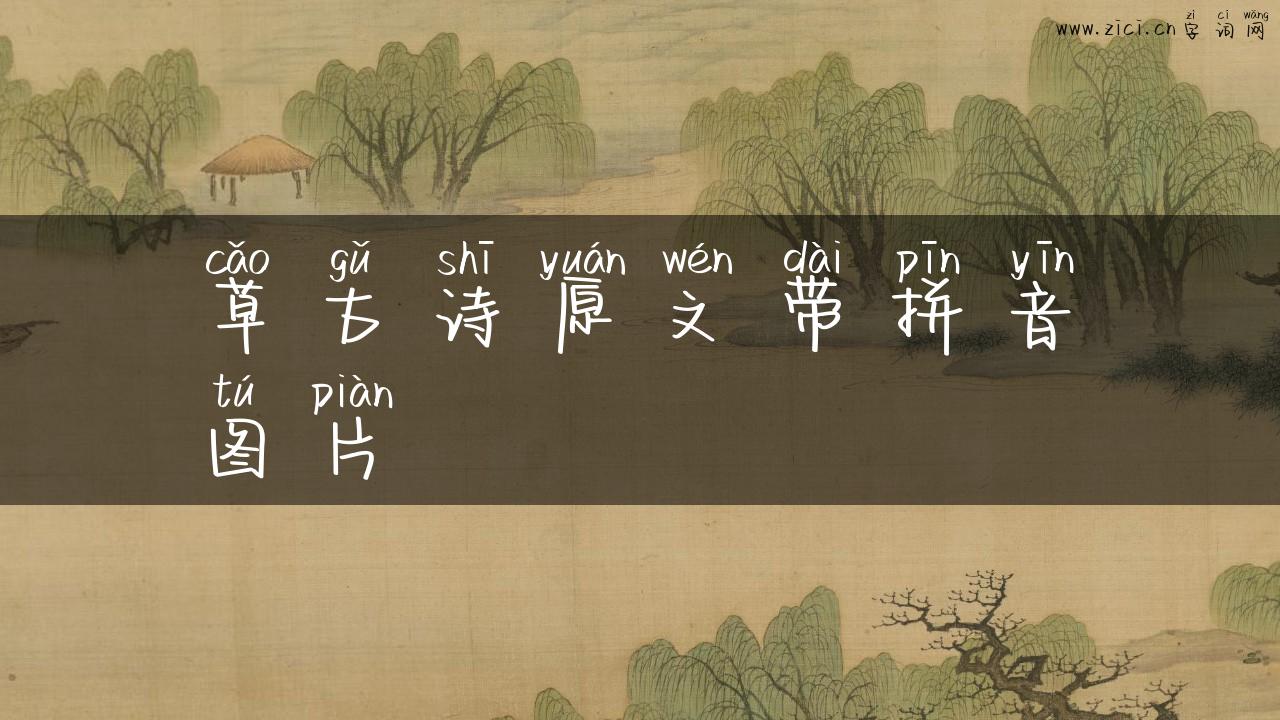 zì cí wǎng
www.zici.cn 字 词 网
cǎo gǔ shī yuán wén dài pīn yīn
草 古 诗 原 文 带 拼 音
tú piàn
图 片